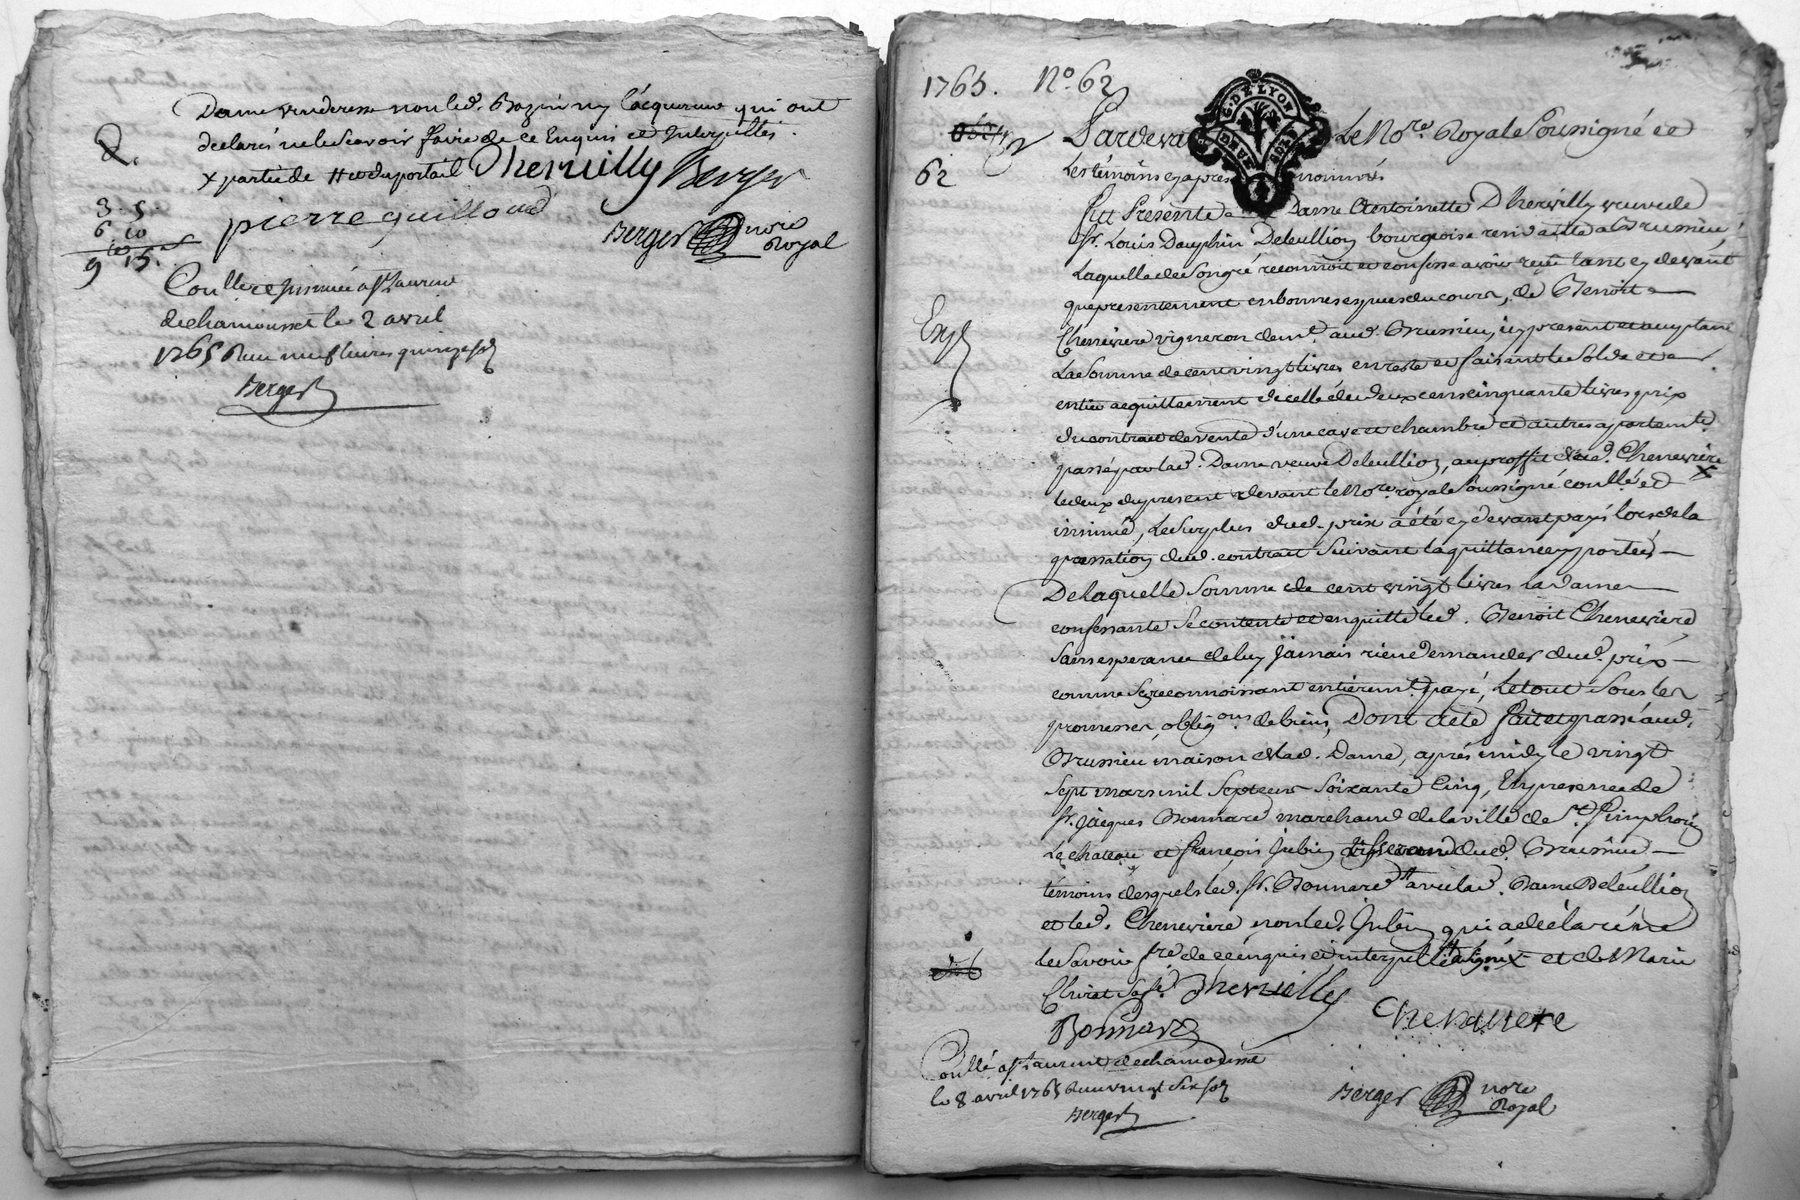 Dame venderesse non led. Bazin ny l'acquereur qui ont
declarés ne le Scavoir faire de ce Enquis et Interpellés.
x partie de
Dhervilly Berger
pierre guilloud
Berger nore
Royal
3 5
6 10
9 15
Conllé et Insinué a St Laurent
de chamousset le 2 avril
1765 Reçu neuf livres quinze sols
Berger
1765. No. 62
62
Pardevant Le Nore. Royal Soussigné et
Les témoins cy apres nommés
G. DE LYON
DEUX SOLS
fut Presente Dame Antoinette Dhervilly veuve de
Sr. Louis Dauphin Deleullion bourgeoise residante a Brussieu,
Laquelle de Son gré reconnoit et confesse avoir reçu tant cy devant
que presentement en bonnes especes du cours, de Benoit
Exp
Chenevière vigneron demt. aud. Brussieu, icy present et acceptant
La Somme de cent vingt livres en reste et faisant le Solde et
entier acquittement de celle de deux cens cinquante livres prix
du contrat de vente d'une cave et chambre et autres apartements
passé par lad. Dame veuve Deleullion, au proffit dud. Chenevière
le deux du present devant le Nore. royal Soussigné conllé et
insinué, Le Surplus dud. prix a été cy devant payé lors de la
passation dud. contrat Suivant la quittance y portée
De laquelle Somme de cent vingt livres la Dame
confessante Se contente et en quitte led. Benoit Chenevière
Sans esperance de luy Jamais rien demander dud. prix
comme Se reconnoissant entièremt. payé, Le tout Sous les
promesses, obligons. de biens, Dont acte fait et passé aud.
Brussieu maison de lad. Dame, après midy le vingt
Sept mars mil Sept cens Soixante Cinq, En presence de
Sr. Jacques Bonnard marchand de la ville de St. Simphorien
Le chateau et françois Jubin tisserand dud. Brussieu
témoins desquels led. Sr. Bonnard a avec lad. Dame Deleullion
et led. Chenevière non led. Jubin qui a déclaré ne
le Savoir fre. de ce enquis et interpellé signé x et de Marie
Dhervilly
Chenaviere
Bonnard
Conllé a St Laurent de chamousset
le 8 avril 1765 Reçu vingt Six sols
Berger
Berger nore
Royal